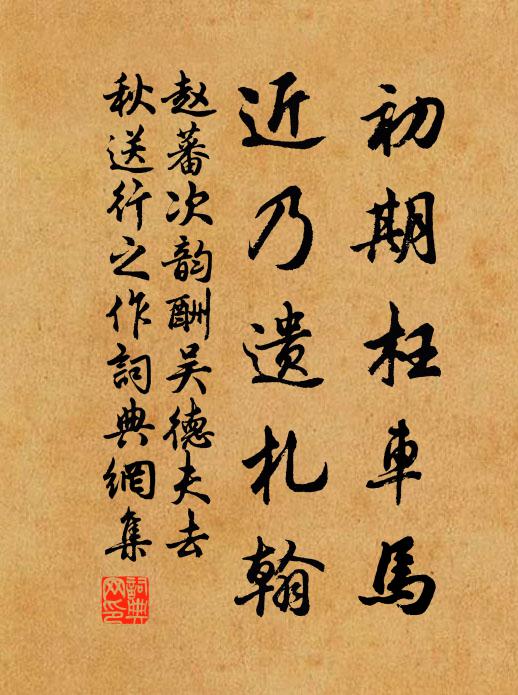 初期枉車馬
近乃遗札翰
赵蕃次韵酬吴德夫去
秋送行之作詞典網集
詞典网印